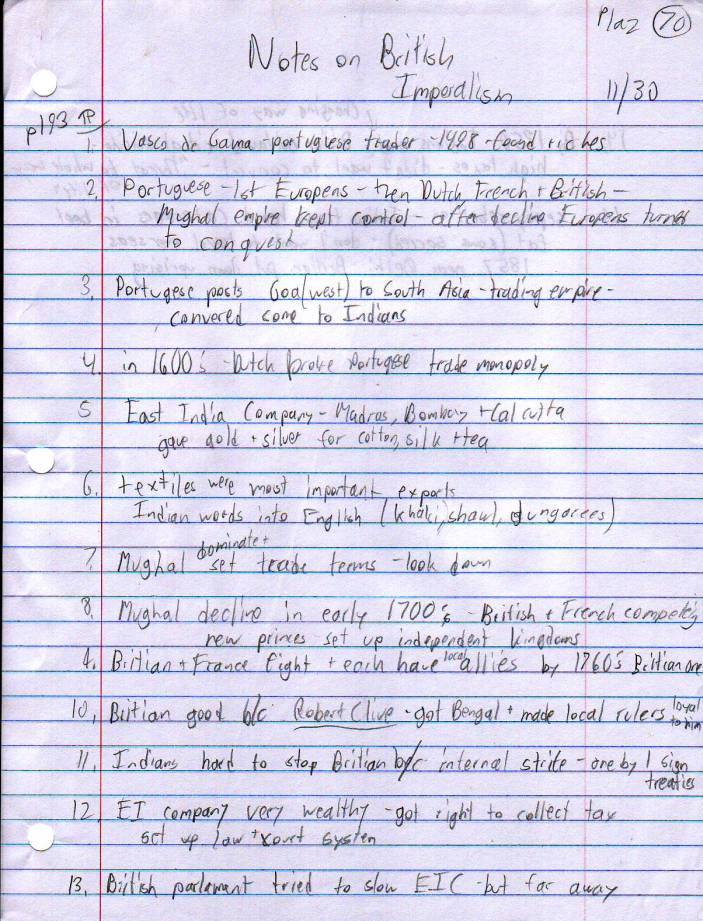 Plaz 70
Notes on British
Imperalism 11/30
p193 TP
1. Vasco de Gama portuguese trader - 1498 - found riches
2. Portuguese - 1st Europens - then Dutch, French + British -
Mughal empire kept control - after decline Europens turned
to conquest
3. Portugese posts Goa (west) to South Asia - trading empire -
convered some to Indians
4. in 1600's - Dutch broke Portugese trade monopoly
5 East India Company - Madras, Bombay + Calcutta
gave gold + silver for cotton, silk + tea
6. textiles were most important exports
Indian words into English (khaki, shawl, dungarees)
7. Mughal dominate + set trade terms - look down
8. Mughal decline in early 1700's - British + French competely
new princes set up independent kingdoms
9. Britian + France fight + each have local allies by 1760's Britian one
10. Biitian good b/c Robert Clive - got Bengal + made local rulers loyal to him
11. Indians hard to stop Britian b/c internal strife - one by 1 sign
treaties
12. EI company very wealthy - got right to collect tax
set up law + court system
13. British parlament tried to slow EIC - but far away